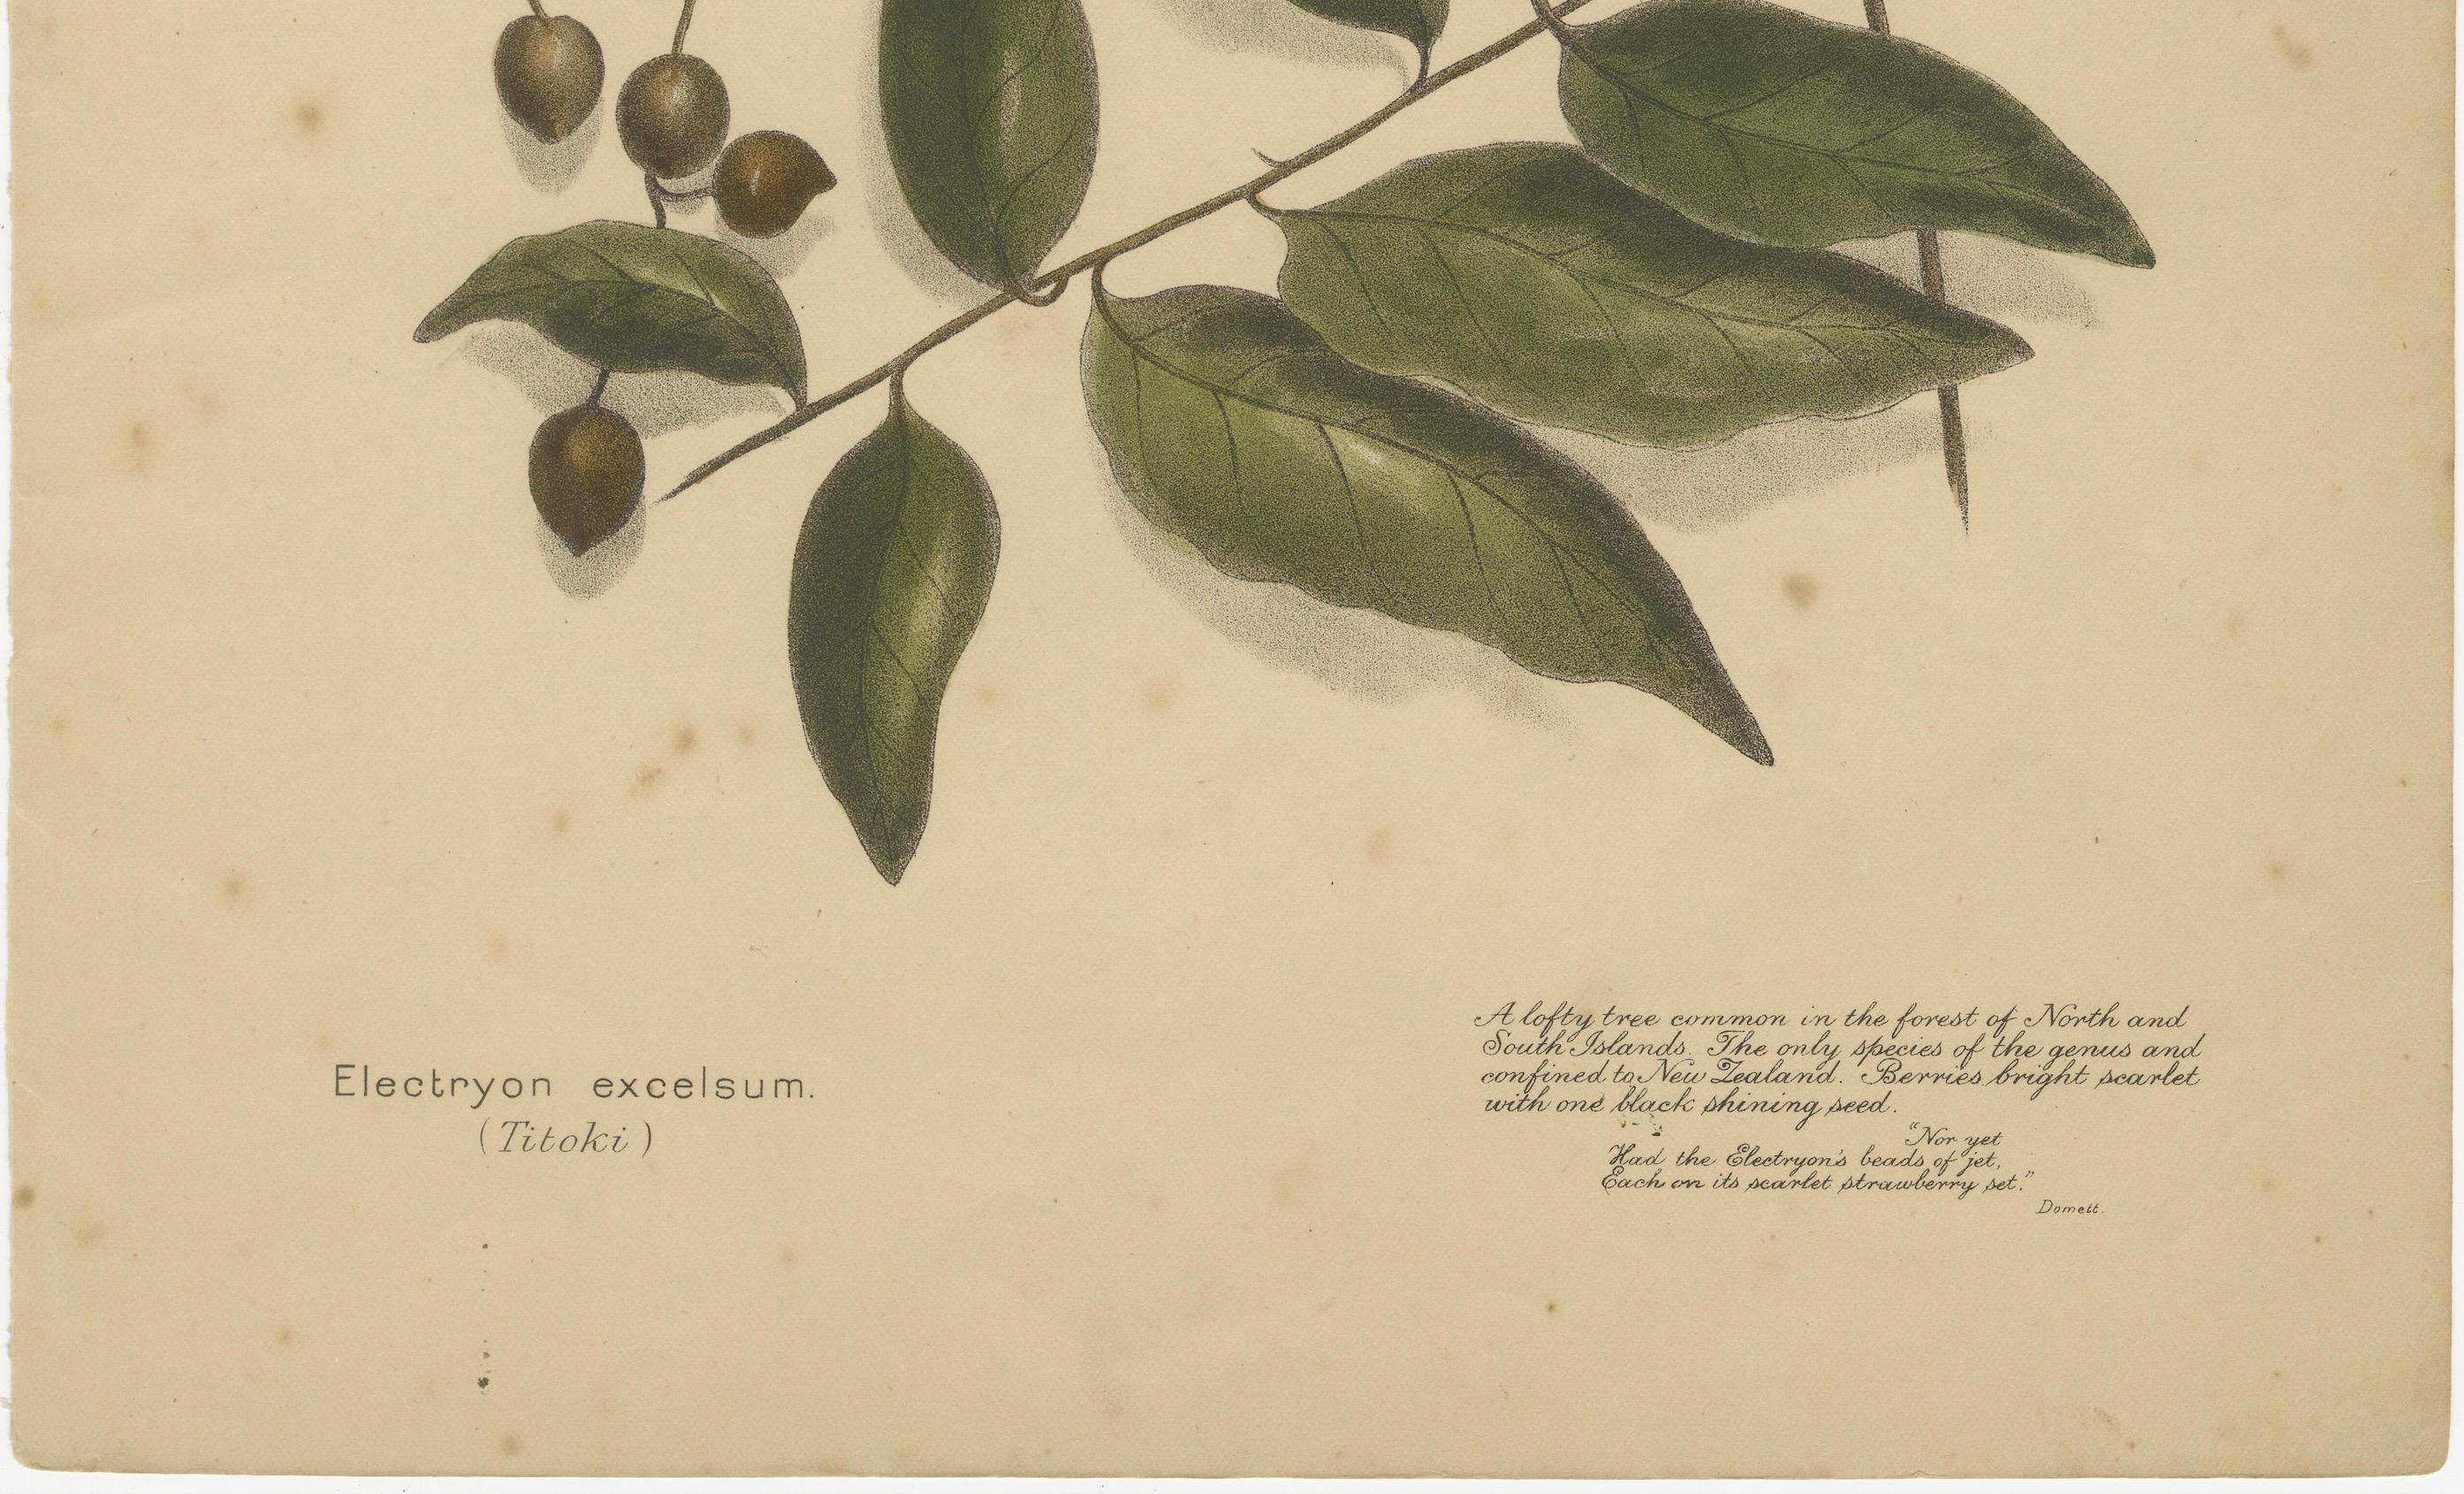 Electryon excelsum.
(Titoki)
A lofty tree common in the forest of North and
South Islands. The only species of the genus and
confined to New Zealand. Berries bright scarlet
with one black shining seed.
"Nor yet
Had the Electryon's beads of jet,
Each on its scarlet strawberry set."
Domett.